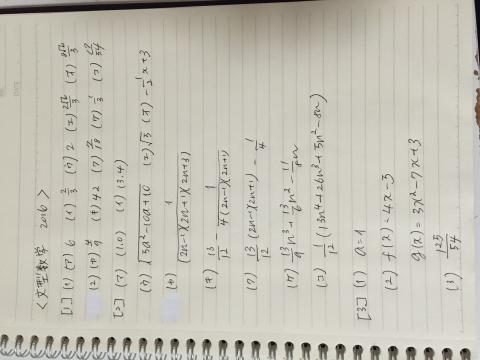 <文型数学 2016>
[1] (1) (ア) 6 (イ) 2/3 (ウ) 2 (エ) 2√2/3 (オ)
(2) (カ) (キ) 42 (ク) (ケ) 1/3 (コ)
[2] (ア) (1.0) (イ) (3.4)
(ウ) √(5a²-10a+10) (エ) √5 (オ) -1/2 x+3
(カ) 1/((2n-1)(2n+1)(2n+3))
(キ) 13/12 - 1/(4(2n-1)(2n+1))
(ク) 13/12 (2n-1)(2n+1) - 1/4
(ケ) 13/9 n³+13/6 n²-11/18 n
(コ) 1/12 (13n⁴+26n³+5n²-8n)
[3] (1) a=1
(2) f(x)=4x-3
g(x)=3x²-7x+3
(3) 125/54